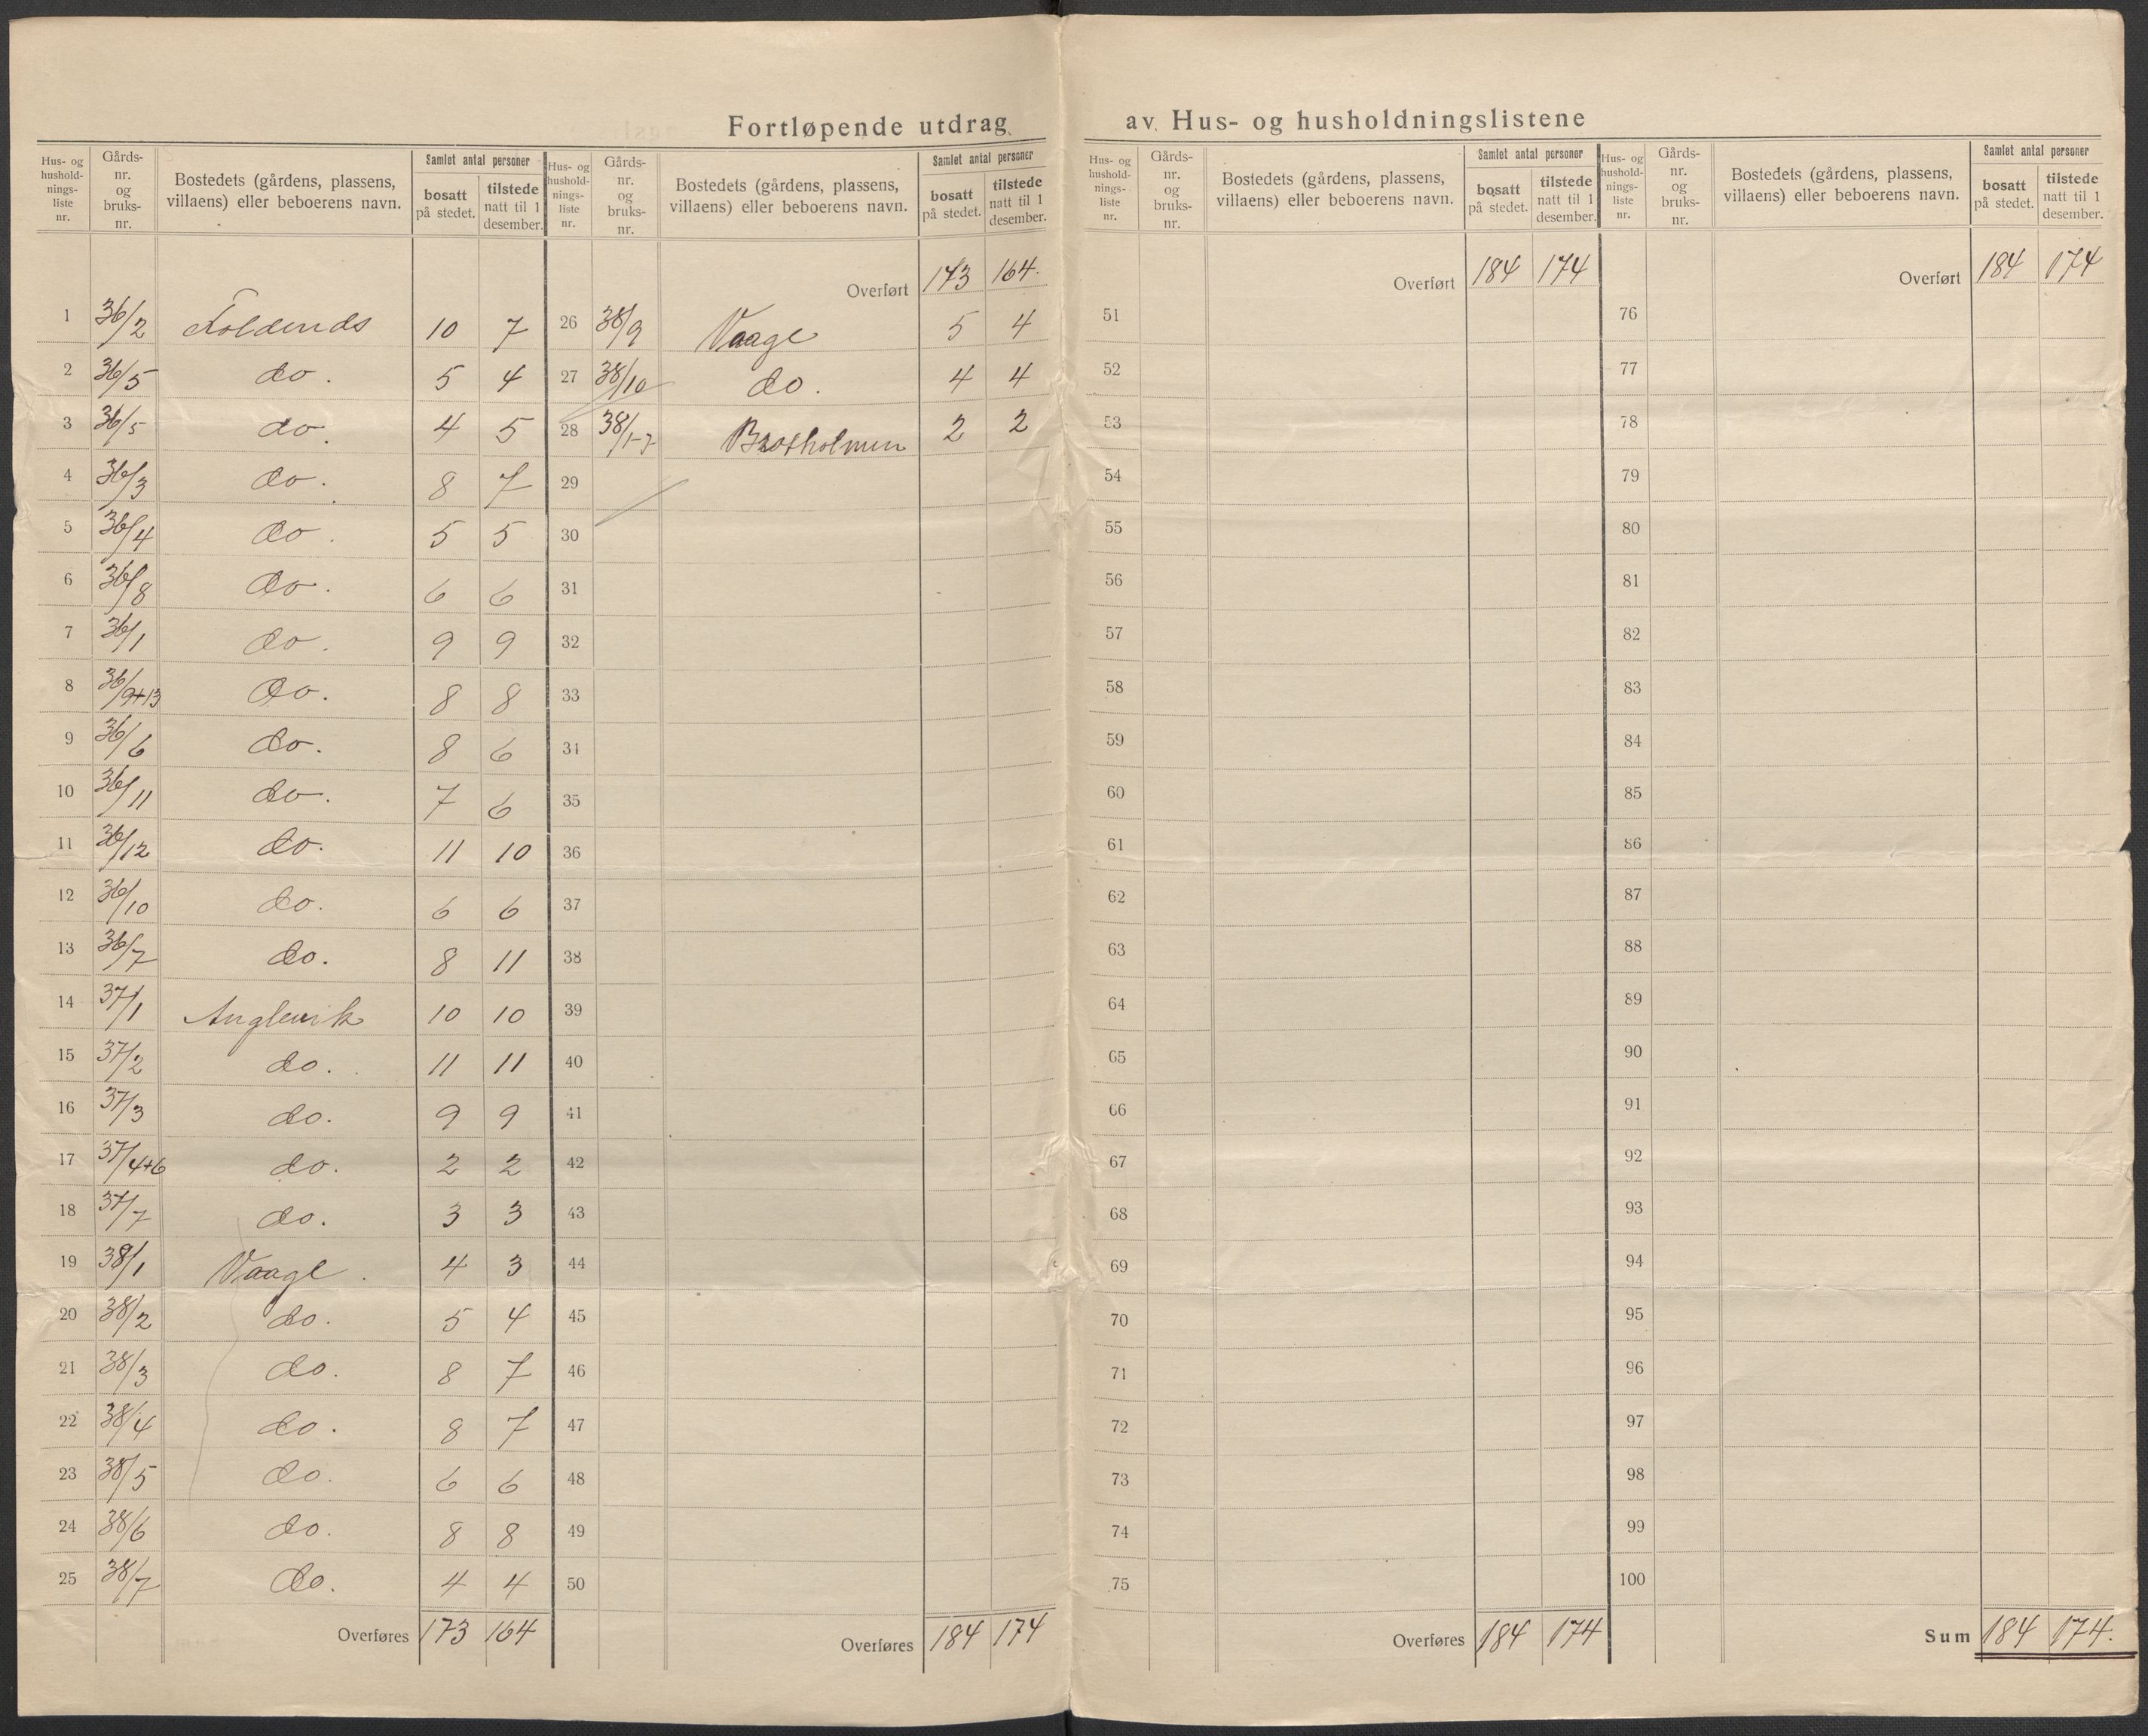 Fortløpende utdrag av Hus- og husholdningslistene
Hus- og hushold-nings-liste nr. | Gårds-nr. og bruks-nr. | Bostedets (gårdens, plassens, villaens) eller beboerens navn. | Samlet antal personer | bosatt på stedet. | tilstede natt til 1 desember.
1 36/2 Foldends 10 7
2 36/5 do. 5 4
3 36/5 do. 4 5
4 36/3 do. 8 7
5 36/4 do. 5 5
6 36/8 do. 6 6
7 36/1 do. 9 9
8 36/9+13 do. 8 8
9 36/6 do. 8 6
10 36/11 do. 7 6
11 36/12 do. 11 10
12 36/10 do. 6 6
13 36/7 do. 8 11
14 37/1 Anglevik 10 10
15 37/2 do. 11 11
16 37/3 do. 9 9
17 37/4+6 do. 2 2
18 37/7 do. 3 3
19 38/1 Vaage. 4 3
20 38/2 do. 5 4
21 38/3 do. 8 7
22 38/4 do. 8 7
23 38/5 do. 6 6
24 38/6 do. 8 8
25 38/7 do. 4 4
Overføres 173 164
Hus- og hushold-nings-liste nr. | Gårds-nr. og bruks-nr. | Bostedets (gårdens, plassens, villaens) eller beboerens navn. | Samlet antal personer | bosatt på stedet. | tilstede natt til 1 desember.
Overført 173 164.
26 38/9 Vaage 5 4
27 38/10 do. 4 4
28 38/1-7 Brotholmen 2 2
29
30
31
32
33
34
35
36
37
38
39
40
41
42
43
44
45
46
47
48
49
50
Overføres 184 174
Hus- og hushold-nings-liste nr. | Gårds-nr. og bruks-nr. | Bostedets (gårdens, plassens, villaens) eller beboerens navn. | Samlet antal personer | bosatt på stedet. | tilstede natt til 1 desember.
Overført 184 174
51
52
53
54
55
56
57
58
59
60
61
62
63
64
65
66
67
68
69
70
71
72
73
74
75
Overføres 184 174
Hus- og hushold-nings-liste nr. | Gårds-nr. og bruks-nr. | Bostedets (gårdens, plassens, villaens) eller beboerens navn. | Samlet antal personer | bosatt på stedet. | tilstede natt til 1 desember.
Overført 184 174
76
77
78
79
80
81
82
83
84
85
86
87
88
89
90
91
92
93
94
95
96
97
98
99
100
Sum 184 174.